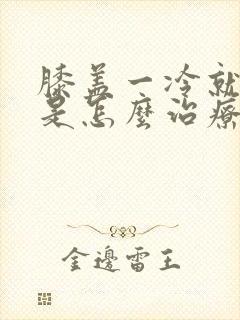 膝盖一冷就
是怎麼治療
金邊雷王